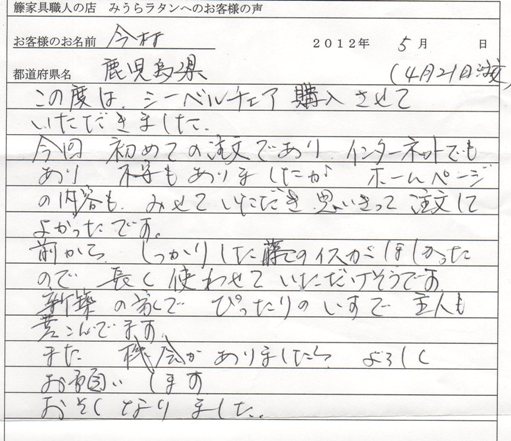 籐家具職人の店 みうらラタンへのお客様の声
お客様のお名前 今村 2012年 5月 日
都道府県名 鹿児島県 (4月21日注文)
この度は、シーベルチェア購入させて
いただきました。
今回 初めての注文であり インターネットでも
あり 不安もありましたが ホームページ
の内容も、みせていただき思いきって注文して
よかったです。
前から しっかりした籐のイスがほしかった
ので 長く使わせていただけそうです
新築の家で ぴったりのいすで 主人も
喜こんでます。
また 機会がありましたら よろしく
お願いします
おそくなりました。